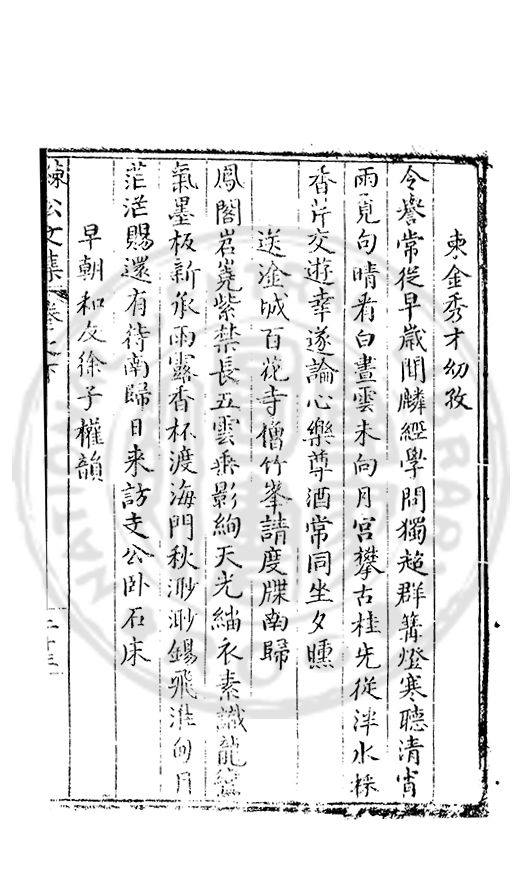 柬金秀才幼孜
令譽常從早歲聞麟經學問獨超群篝燈寒聽清宵
雨覓句晴看白晝雲未向月宮攀古桂先從泮水採
香芹交遊幸遂論心樂尊酒常同坐夕曛
送淦城百花寺僧竹峯請度牒南歸
鳳閣岧嶤紫禁長五雲垂影絢天光緇衣素識龍
氣墨板新承雨露香杯渡海門秋渺渺錫飛淮甸月
茫茫賜還有待南歸日来訪支公卧石床
早朝和友徐子權韻
練公文集 卷之下
二十三